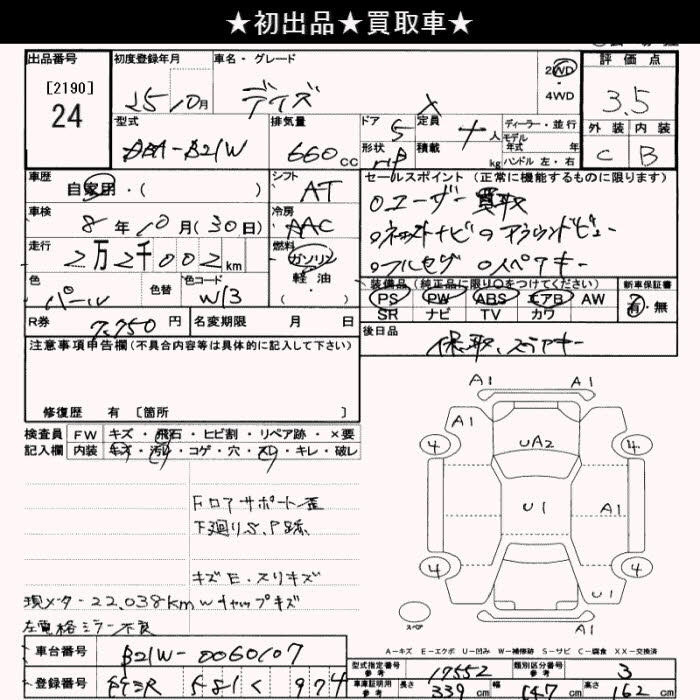 ★初出品★買取車★
出品番号 初度登録年月 車名・グレード 2WD 評価点
[2190]
24
25 10月 デイズ 4WD 3.5
型式 排気量 ドア 定員 ディーラー・並行 外装 内装
DBA-B21W 660cc 5 4人 モデル年式 年 C B
形状 積載 kg ハンドル 左・右
車歴 シフト セールスポイント (正常に機能するものに限ります)
自家用・( ) AT ○ユーザー買取
車検 冷房
8年10月(30日) AAC ○ネットナビ ○アラウンドビュー
走行 燃料
2万2千002km ガソリン ○フルセグ ○スペアキー
色 色替 色コード 軽油 装備品(純正品に限り○をつけてください) 新車保証書
パール W13 ・( ) PS PW ABS エアB AW 有・無
SR ナビ TV カワ
R券 7,750円 名変期限 月 日 後日品
注意事項申告欄(不具合内容等は具体的に記入して下さい) 保、取、スペアキー
修復歴 有 [箇所 ]
検査員 FW キズ・飛石・ヒビ割・リペア跡・×要
記入欄 内装 キズ・汚レ・コゲ・穴・スレ・キレ・破レ
A1 A1
A1 UA2
4 4
U1 A1
4 4
U1
スペア A1
フロアサポート歪
下廻りS、P跡
キズE・スリキズ
現メーター22,038km Wキャップキズ
左電格ミラー不良
A-キズ E-エクボ U-凹み W-補修跡 S-サビ C-腐食 XX-交換済
車台番号 B21W-0060107 型式指定番号 参考 17552 類別区分番号 参考 3
登録番号 581 く 974 車庫証明用 参考 長さ 339cm 幅 147cm 高さ 162cm